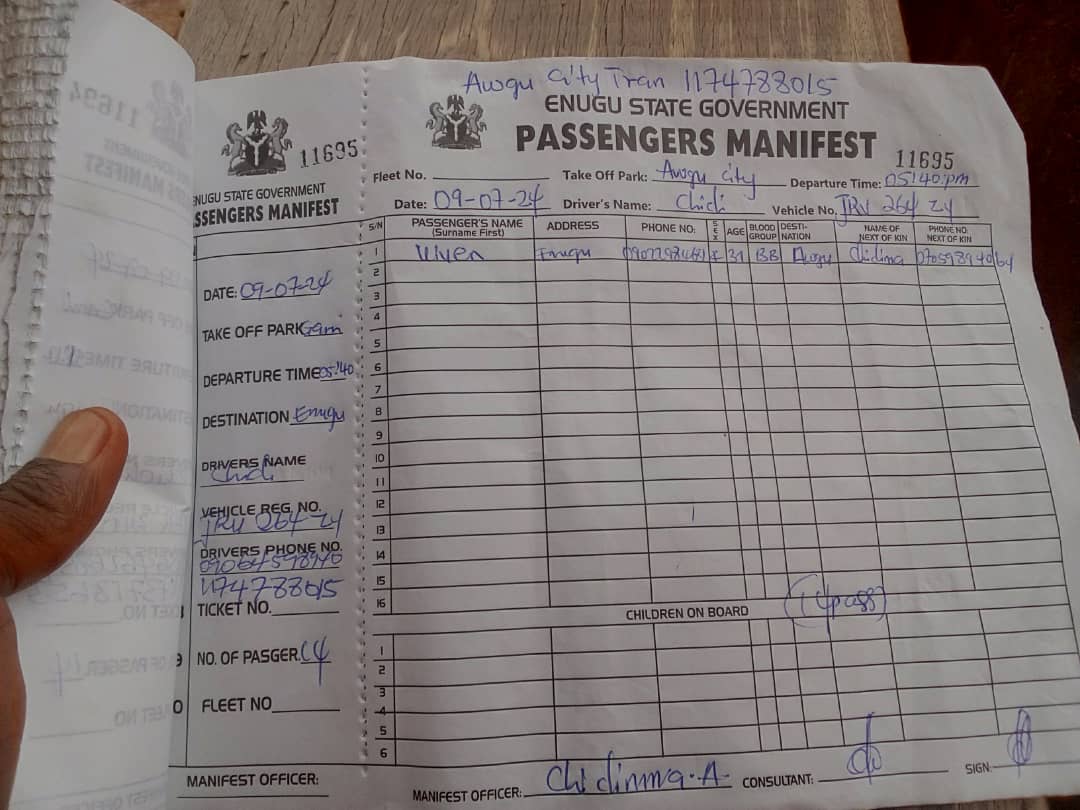 Awgu City Tran 1174788015
ENUGU STATE GOVERNMENT
PASSENGERS MANIFEST
11695
Fleet No.
Take Off Park: Awgu City
Departure Time: 05:40:pm
Date: 09-07-24
Driver's Name: Chidi
Vehicle No. JRV 264 ZY
S/N
PASSENGER'S NAME (Surname First)
ADDRESS
PHONE NO:
SEX
AGE
BLOOD GROUP
DESTI-NATION
NAME OF NEXT OF KIN
PHONE NO. NEXT OF KIN
1 Enugu 31 BB Awgu Chidima 07059894064
2
3
4
5
6
7
8
9
10
11
12
13
14
15
16
CHILDREN ON BOARD
(14pass)
1
2
3
4
5
6
MANIFEST OFFICER: Chidinma.A.
CONSULTANT:
SIGN:
11695
ENUGU STATE GOVERNMENT
SSENGERS MANIFEST
DATE: 09-07-24
TAKE OFF PARK
DEPARTURE TIME 05:40
DESTINATION Enugu
DRIVERS NAME
Chidi
VEHICLE REG. NO.
JRV 264-ZY
DRIVERS PHONE NO.
09064598940
1174788015
TICKET NO.
NO. OF PASGER. 14
FLEET NO
MANIFEST OFFICER: